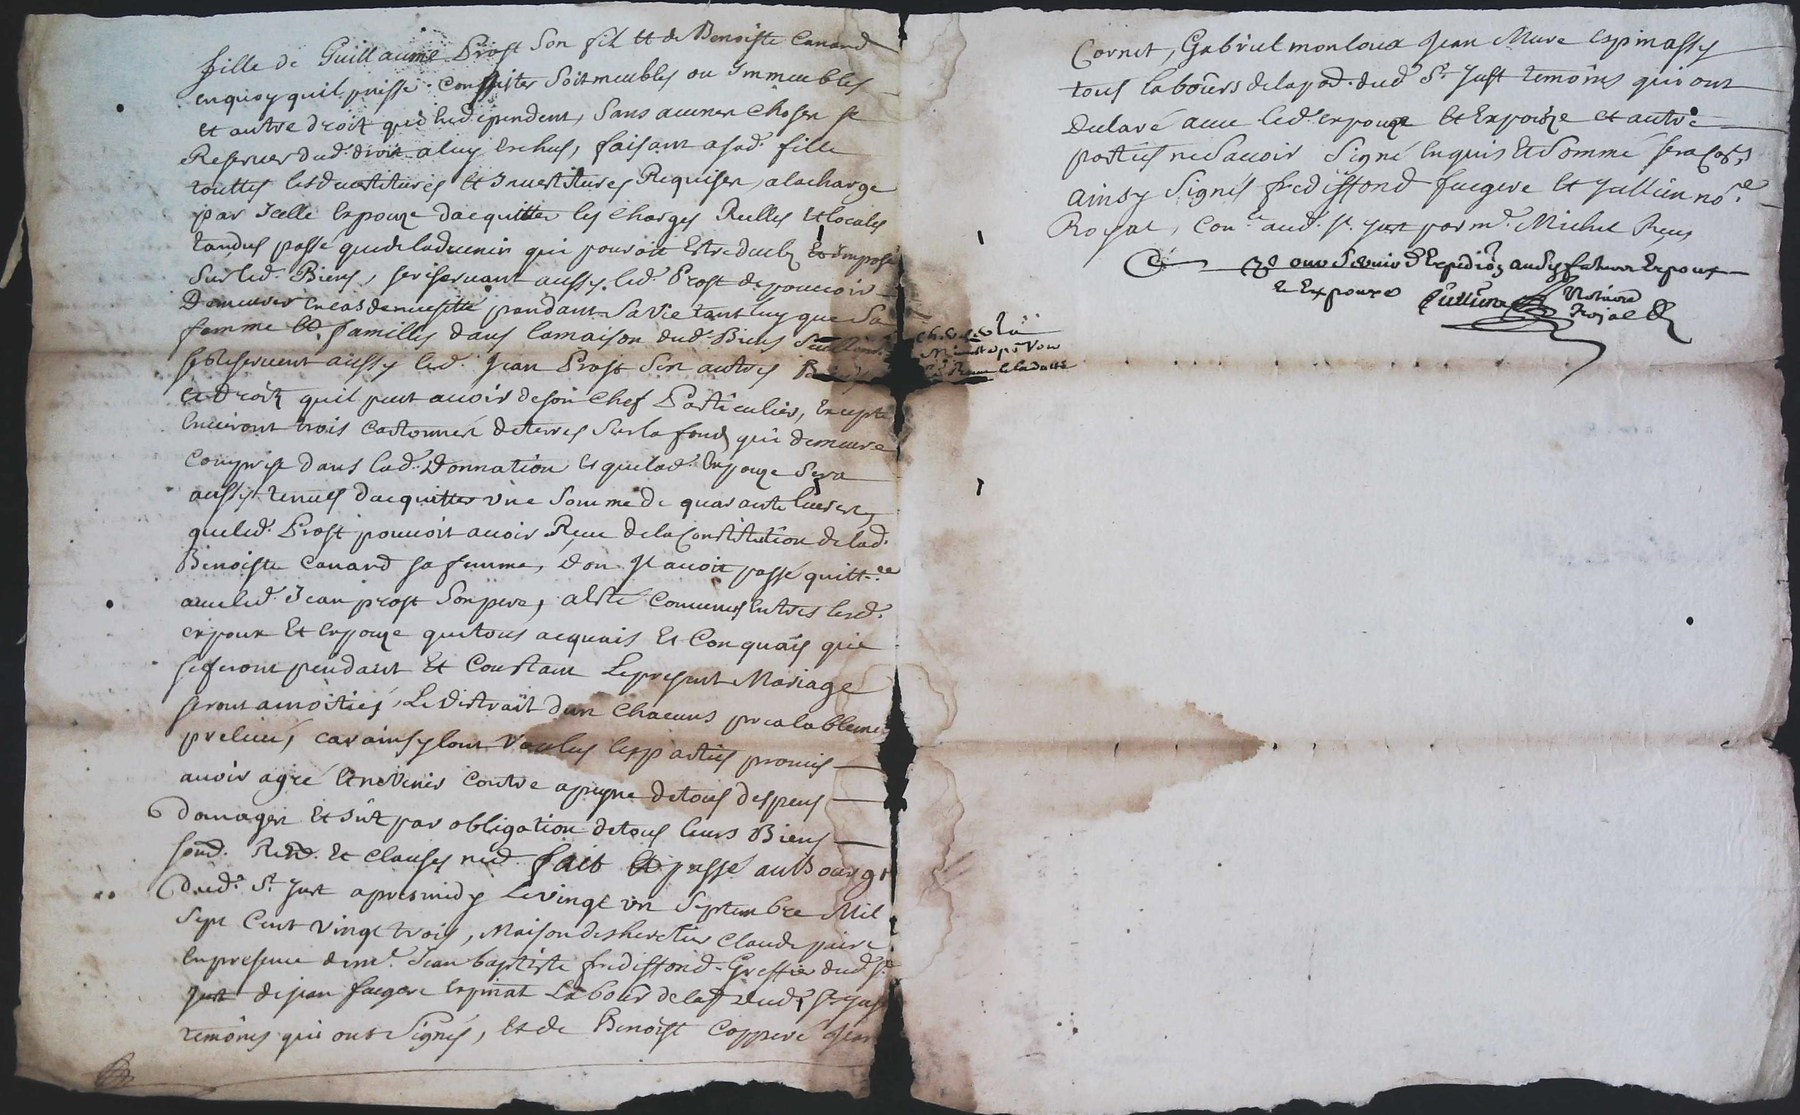 fille de Guillaume Prost Son fil et de Benoiste Canard
enquoy quil puisse Consister Soit meubles ou Immeubles
et autre droit qui en dependent, Sans aucunes Choses se
Reserver dud. droit a luy Echus, faisant a sad. fille
touttes les devestitures et Investitures Requises, a la charge
par Icelle Expouze dacquitter les charges Reelles et locales
tandus passé que de ladvenir qui pouroit Estre dues et Impose
Sur led. Biens, se reservant aussy led. Prost de pouvoir
Demeurer en cas de necessité pendant Sa vie tant luy que Sa
femme et familles dans la maison dud. Biens
se Reservent aussy led. Jean Prost Ses autres
et droits quil peut avoir de son Chef Particulier, Excepté
Environt trois Cartonnés de terres Sur la fond qui demeure
Comprise dans lad. Donnation et que lad. Expouze Sera
aussy tenues dacquitter une Somme de quarante livres
que led. Prost pouvoit avoir Reçue de la Constitution de lad.
Benoiste Canard sa femme, don Il avoit passé quitt.ce
avec led. Jean prost Son pere, a Esté Convenus Entres lesd.
expoux Et Expouze que tous acquais Et Conquais qui
se feront pendant Et Constant Le present Mariage
seront a moitiés, Le distrait dun Chacuns prealablement
prelevé, car ainsy lont Voulus les parties promis
avoir agreé Et ne Venir Contre a peyne de tous despens
domages Et Sût par obligation de tous leurs Biens
soud. Rend. Et Clauses ned. fait et passé au Bourg
dud. St. Just apres midy Le vingt un Septembre Mil
Sept Cent Vingt trois, Maison des heretier Claude paire
En presence de me. Jean baptiste frediffond Greffier dud. St.
Just de jean faegere Expinat Labour de la p. dud. St. Just
temoins qui ont Signés, et de Benoist Coppere Jean
Cornet, Gabriel monloux Jean Mure expinassy
tous labours de la pod. dud. St. Just temoins qui ont
Declaré avec led. expoux et Expouze et autre
parties ne Scavoir Signé Enquis Et Sommé
ainsy Signés frediffond faegere et Jullien no.re
Royal, Con.le aud. St. Just par m.e Michel Reçus
Expedion audis futures Expoux
et Expouze Jullien Notaire
Royal